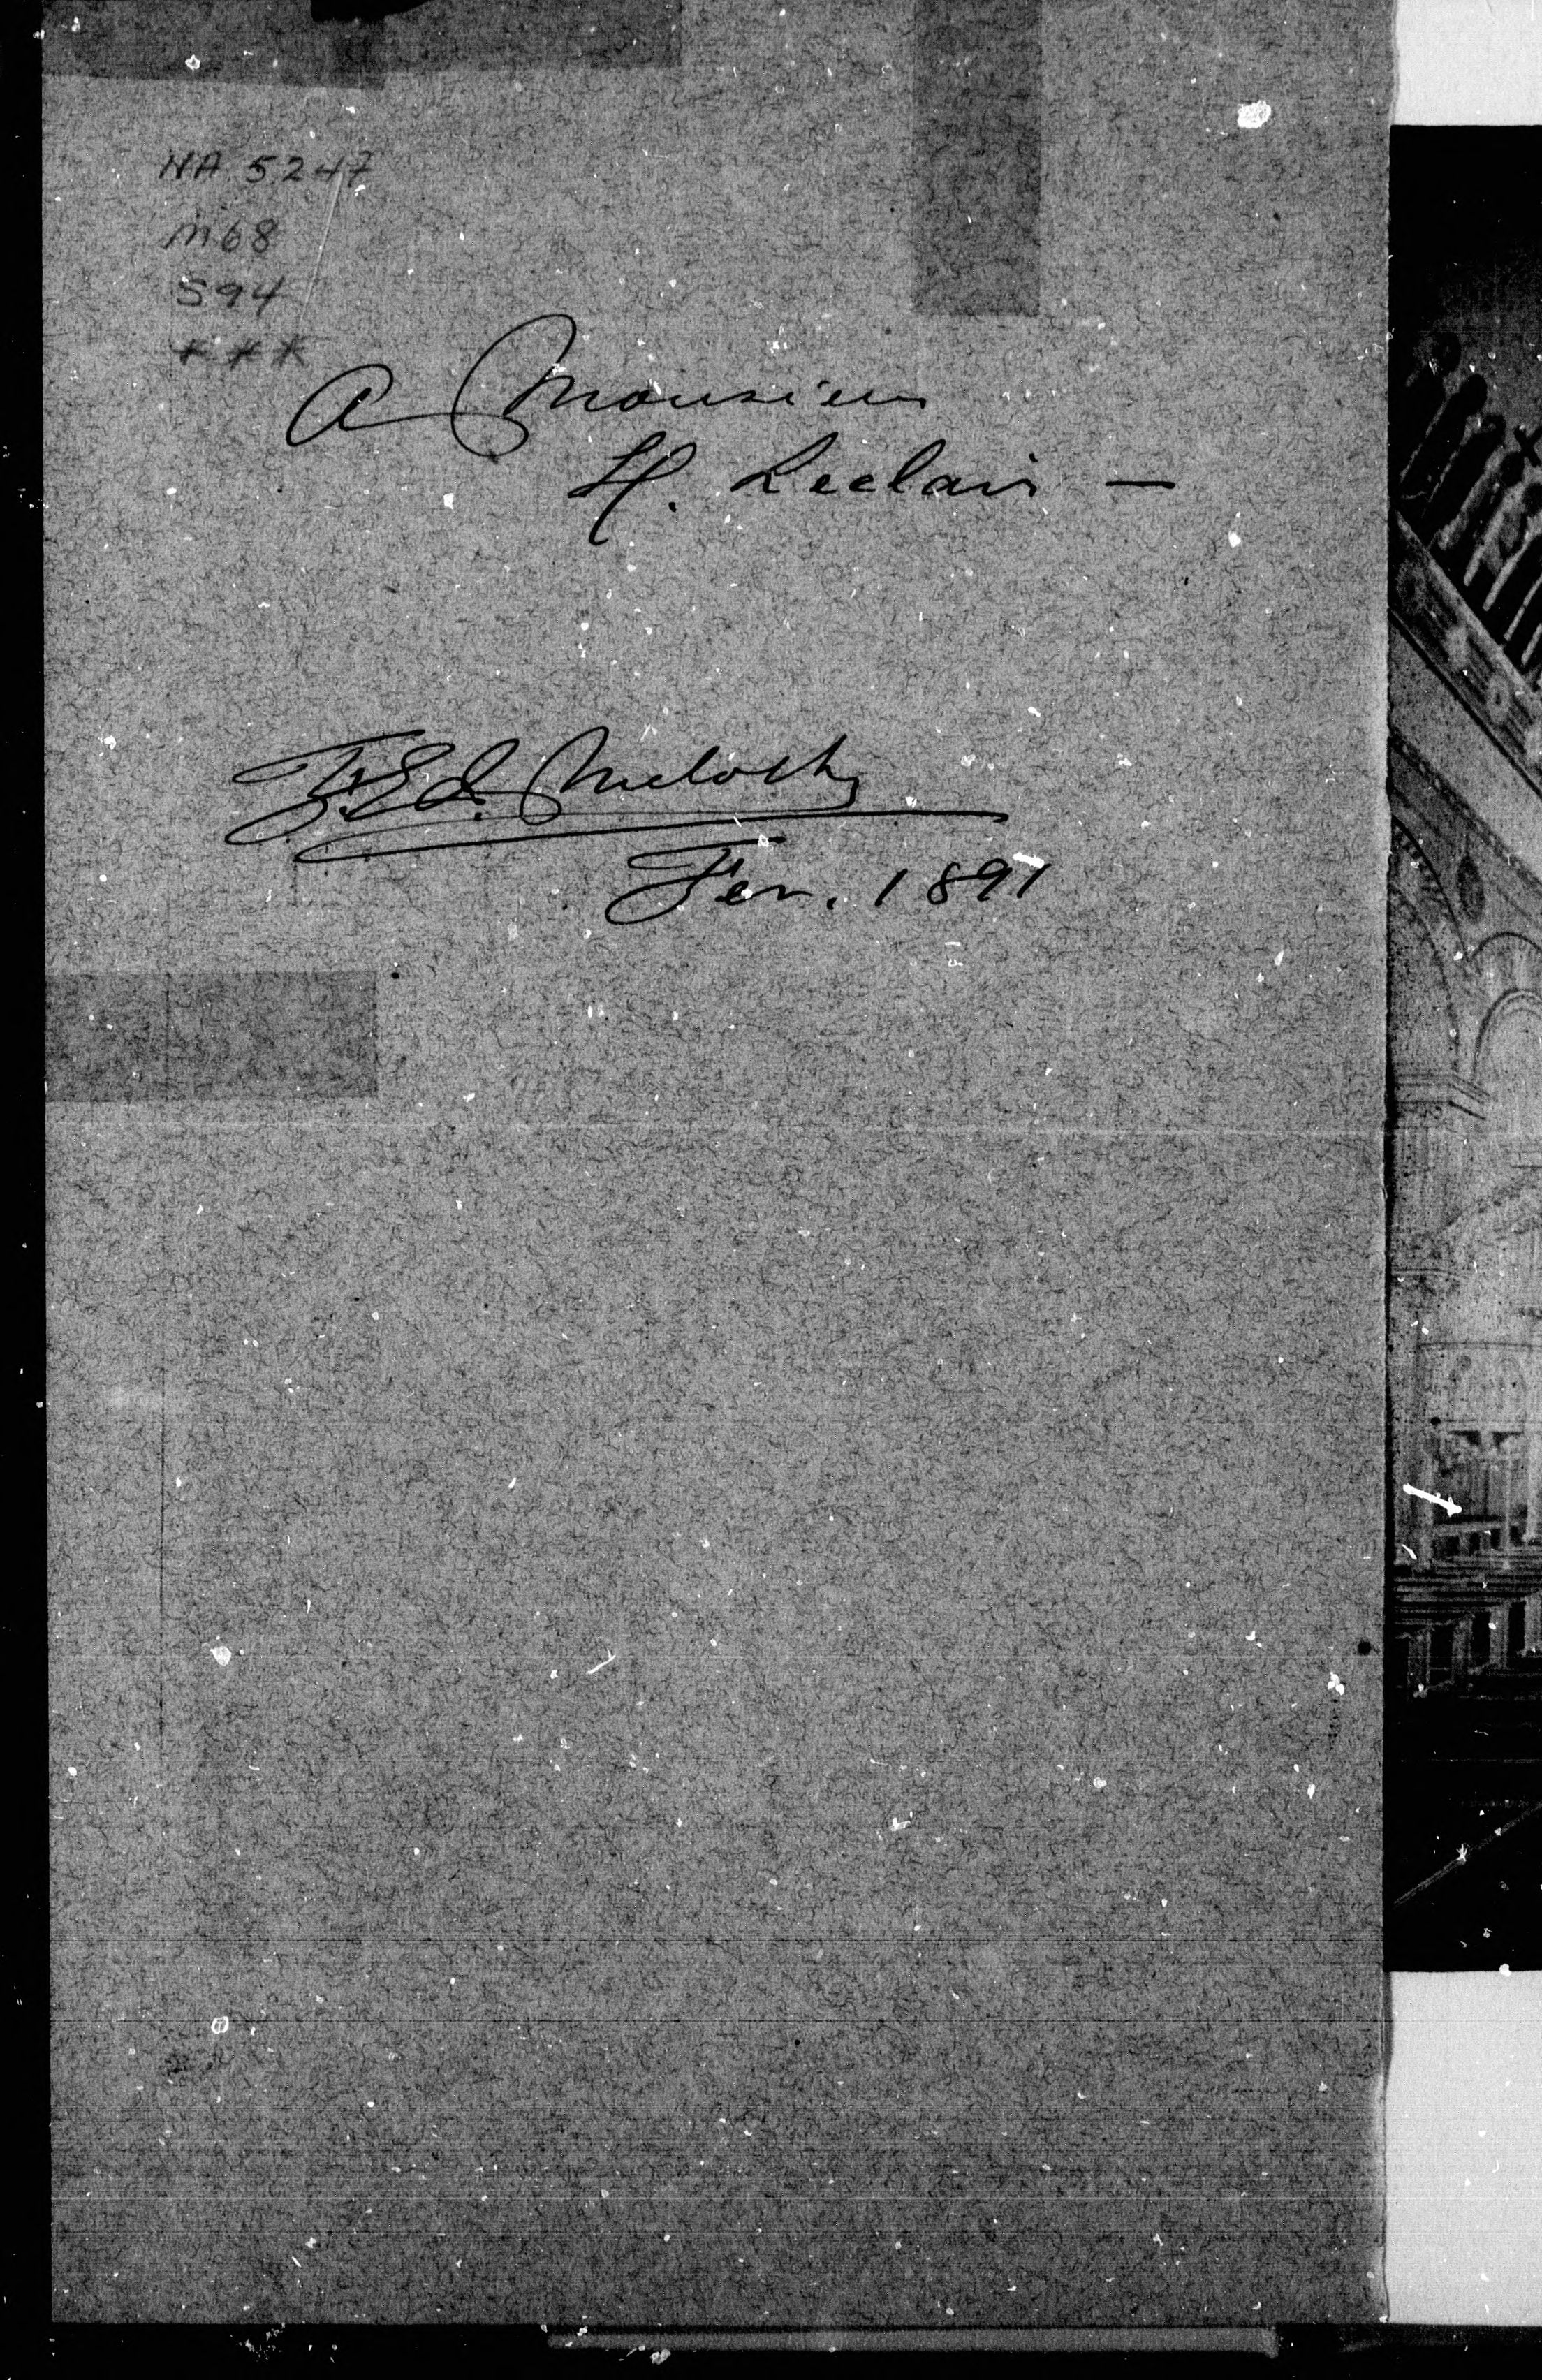 NA 5247
M68
S94
***
A Monsieur
H. Leclair —
F. Ed. Meloche
Fev. 1891